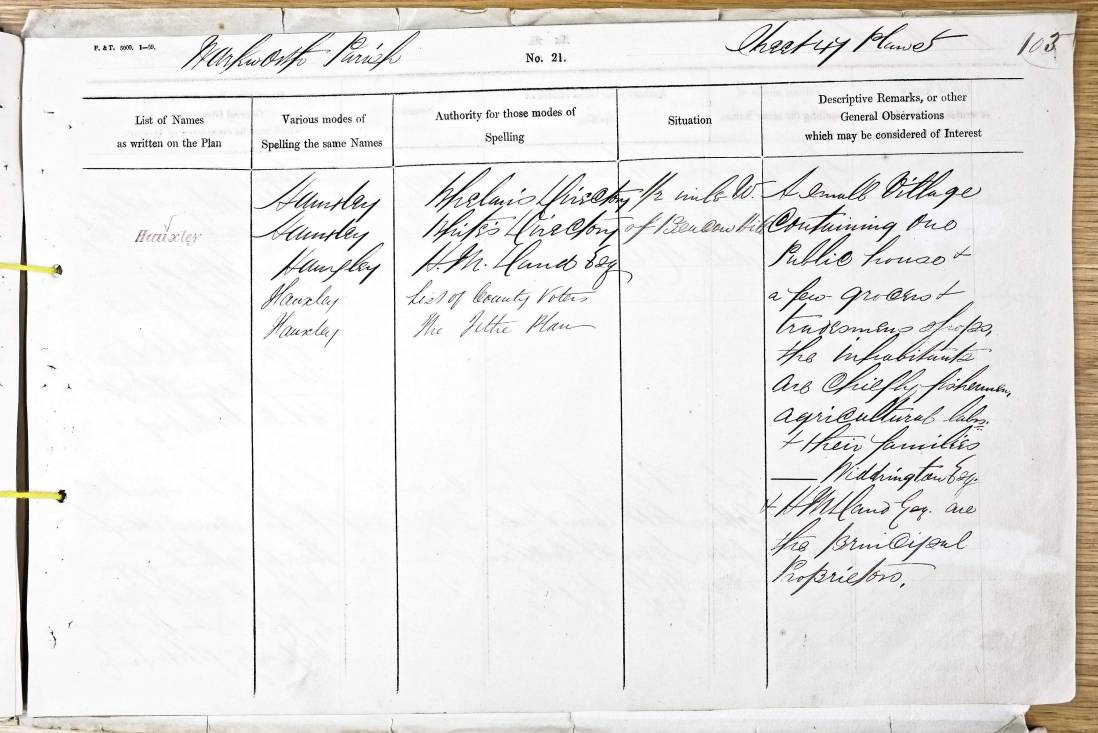 F. & T. 5000. 1—59.
Warkworth Parish
No. 21.
Sheet 47 Plan 5
103
List of Names
as written on the Plan
Various modes of
Spelling the same Names
Authority for those modes of
Spelling
Situation
Descriptive Remarks, or other
General Observations
which may be considered of Interest
Hauxley
Hauxley
Hauxley
Hauxley
Hauxley
Hauxley
Whelan's Directory
White's Directory
H. M. Dand Esq
List of County Voters
The Tithe Plan
1/2 mile W.
of Beacon Hill
A small Village
Containing one
Public house +
a few grocers +
tradesmens shops,
the inhabitants
are Chiefly fishermen,
agricultural labrs.
+ their families
—— Widdrington Esq.
+ H M Dand Esq. are
the principal
Proprietors.